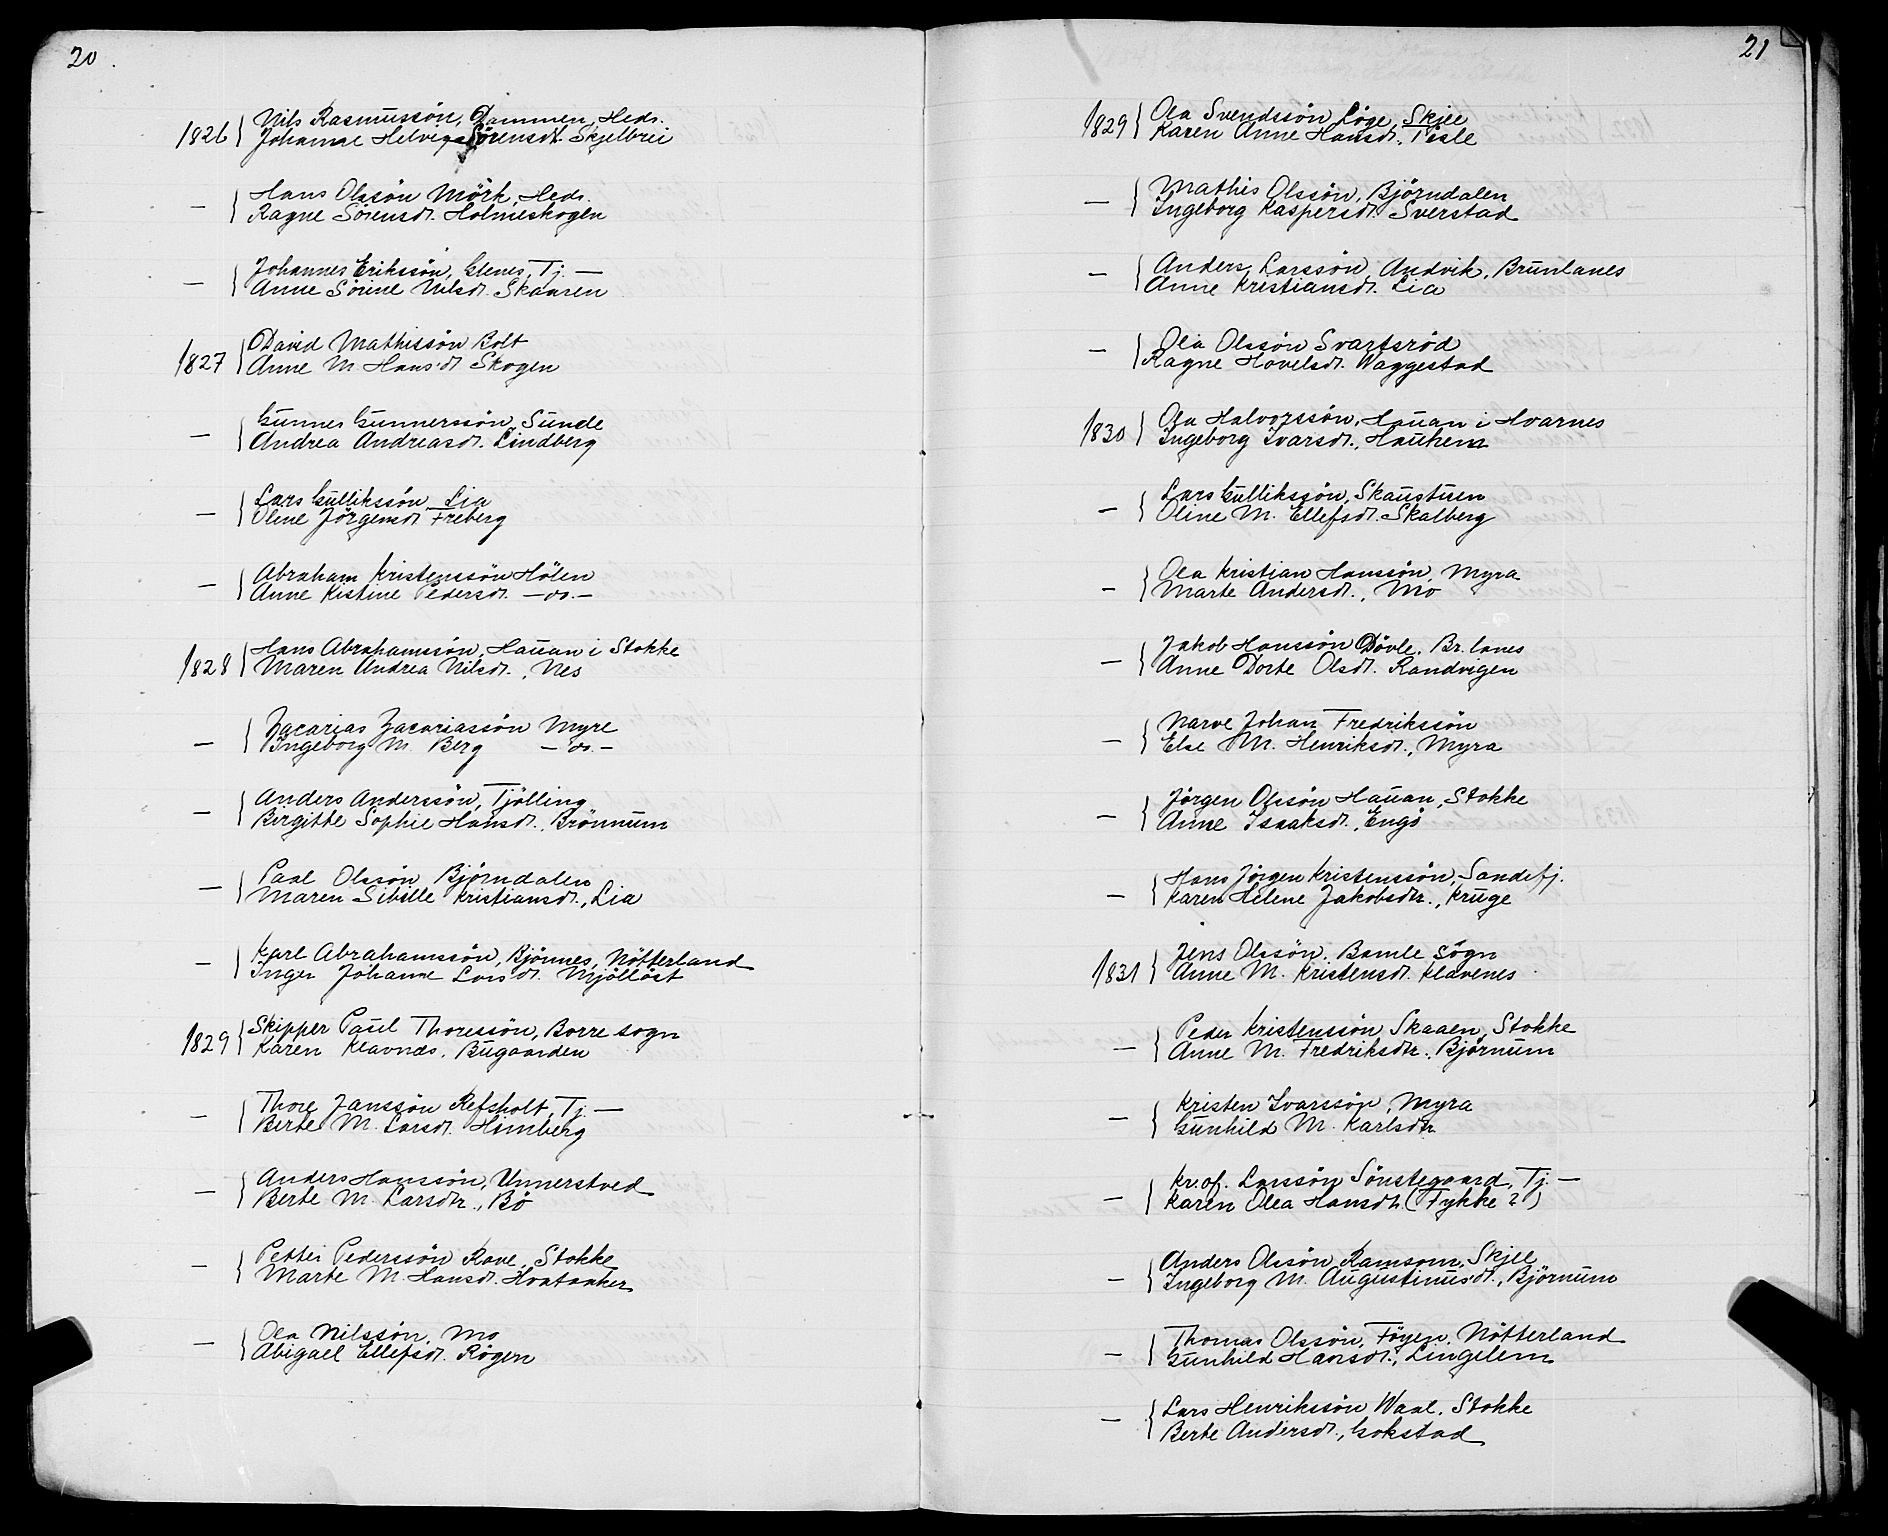 20.
1826 { Nils Rasmussön, Dammen, Heds.
Johanne Helvig Sörensdt. Skjelbrei
— { Hans Olssön Mörk, Heds.
Ragne Sörensdt. Holmeskogen
— { Johannes Erikssön, Glenes, Tj. —
Anne Sörine Nilsdt. Skaaren
1827 { David Mathissön Bolt
Anne M. Hansdt Skogen
— { Gunner Gunnerssön, Sunde
Andrea Andreasdt. Lindberg
— { Lars Gullikssön, Lia
Oline Jörgensdt Freberg
— { Abraham Kristenssön Hölen
Anne Kistine Pedersdt. —do.—
1828 { Hans Abrahamssön, Hauan i Stokke
Maren Andrea Nilsdt., Nes
— { Zacarias Zacariassön Myre
Ingeborg M. Berg —do.—
— { Anders Anderssön, Tjölling
Birgitte Sophie Hansdt., Brönnum
— { Paal Olssön Björndalen
Maren Sibille Kristiansdt., Lia
— { Karl Abrahamssön, Björnnes, Nötterland
Inger Johanne Larsdt. Mjölløst
1829 { Skipper Paul Thoressön, Borre sogn
Karen Klavnæs, Bugaarden
— { Thore Janssön Refsholt, Tj. —
Berte M. Larsdt. Himberg
— { Anders Hanssön, Unnerstved
Berte M. Larsdtr., Bö
— { Petter Pederssön Rave, Stokke
Marte M. Hansdt. Hvataaker
— { Ola Nilssön, Mo
Abigael Ellefsdt. Rögen
21
1829 { Ola Svendssön Löge, Skjee
Karen Anne Hansdt., Tisle
— { Mathis Olssön, Björndalen
Ingeborg Kaspersdt. Sverstad
— { Anders Larssön, Andvik, Brunlanes
Anne Kristiansdt. Lia
— { Ola Olssön Svartsröd
Ragne Hovelsdt. Waggestad
1830 { Ola Halvorssön, Hauan i Hvarnes
Ingeborg Ivarsdt., Haukem
— { Lars Gullikssön, Skaustuen
Oline M. Ellefsdt. Skalberg
— { Ola Kristian Hanssön, Myra
Marte Andersdt., Mo
— { Jakob Hanssön Dövle, Br.lanes
Anne Dorte Olsdt. Randvigen
— { Narve Johan Fredrikssön
Else M. Henriksdt., Myra
— { Jörgen Olssön Hauan, Stokke
Anne Isaaksdt., Engö
— { Hans Jörgen Kristenssön, Sandefj.
Karen Helene Jakobsdtr., Kruge
1831 { Jens Olssön, Bamle Sogn
Anne M. Kristensdt. Klavenes
— { Peder Kristenssön Skaaen, Stokke
Anne M. Fredriksdtr. Björnum
— { Kristen Ivarssön, Myra
Gunhild M. Karlsdtr
— { Kr.of. Larssön Sönstegaard, Tj. —
Karen Olea Hansdt. (Fykke?)
— { Anders Olssön Ramsom, Skjee
Ingeborg M. Augustinusdt., Björnum
— { Thomas Olssön, Föyen, Nötterland
Gunhild Hansdt., Lingelem
— { Lars Henrikssön Waal, Stokke
Berte Andersdt., Gokstad